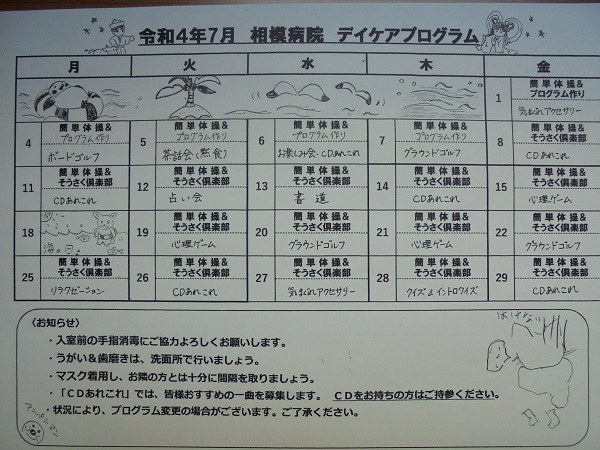 令和4年7月 相模病院 デイケアプログラム
月 火 水 木 金
1 簡単体操&
プログラム作り
気まぐれアクセサリー
4 簡単体操&
プログラム作り
ボードゴルフ
5 簡単体操&
プログラム作り
茶話会(黙食)
6 簡単体操&
プログラム作り
お楽しみ会・CDあれこれ
7 簡単体操&
プログラム作り
グラウンドゴルフ
8 簡単体操&
そうさく倶楽部
CDあれこれ
11 簡単体操&
そうさく倶楽部
CDあれこれ
12 簡単体操&
そうさく倶楽部
占い会
13 簡単体操&
そうさく倶楽部
書道
14 簡単体操&
そうさく倶楽部
CDあれこれ
15 簡単体操&
そうさく倶楽部
心理ゲーム
18 海の日
19 簡単体操&
そうさく倶楽部
心理ゲーム
20 簡単体操&
そうさく倶楽部
グラウンドゴルフ
21 簡単体操&
そうさく倶楽部
心理ゲーム
22 簡単体操&
そうさく倶楽部
グラウンドゴルフ
25 簡単体操&
そうさく倶楽部
リラクゼーション
26 簡単体操&
そうさく倶楽部
CDあれこれ
27 簡単体操&
そうさく倶楽部
気まぐれアクセサリー
28 簡単体操&
そうさく倶楽部
クイズ&イントロクイズ
29 簡単体操&
そうさく倶楽部
CDあれこれ
〈お知らせ〉
・入室前の手指消毒にご協力よろしくお願いします。
・うがい&歯磨きは、洗面所で行いましょう。
・マスク着用し、お隣の方とは十分に間隔を取りましょう。
・「CDあれこれ」では、皆様おすすめの一曲を募集します。 CDをお持ちの方はご持参ください。
・状況により、プログラム変更の場合がございます。ご了承ください。
アンパンマン